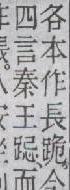 各本作長跪今
四言秦王跽而